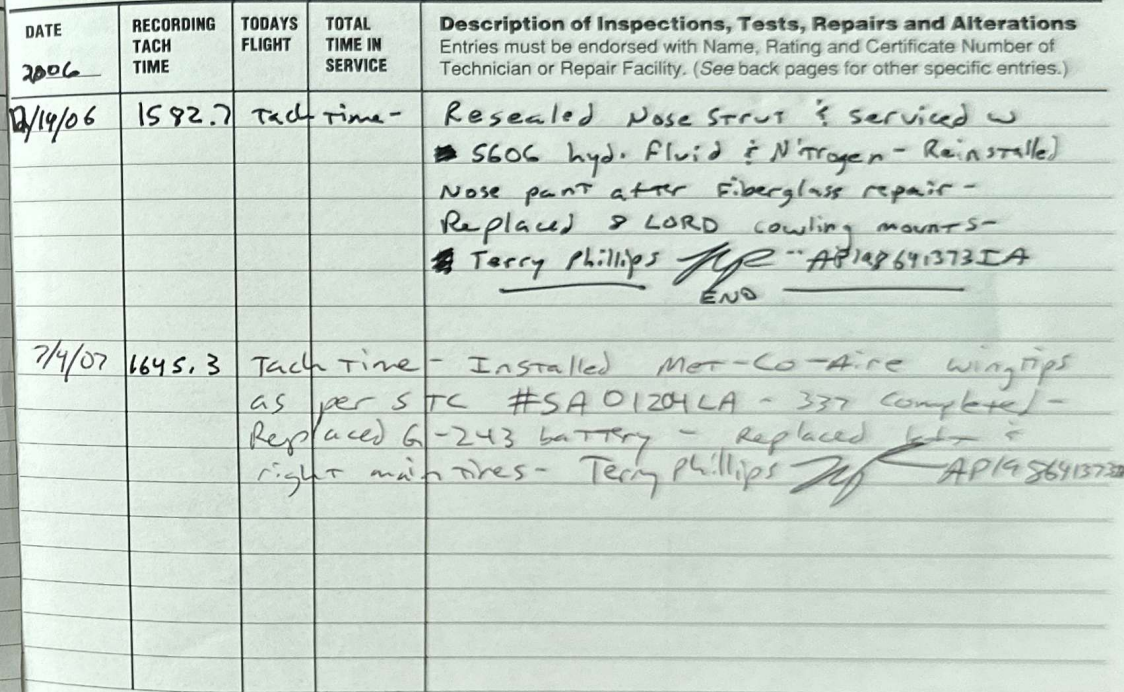 DATE
2006
RECORDING TACH TIME
TODAYS FLIGHT
TOTAL TIME IN SERVICE
Description of Inspections, Tests, Repairs and Alterations
Entries must be endorsed with Name, Rating and Certificate Number of
Technician or Repair Facility. (See back pages for other specific entries.)
12/19/06 1592.7 Tach Time- Resealed Nose Strut & serviced w
5606 hyd. Fluid & Nitrogen - Reinstalled
Nose pant after Fiberglass repair -
Replaced 8 LORD cowling mounts-
Terry Phillips AP198641373IA
END
7/4/07 1645.3 Tach Time - Installed Met-Co-Aire wingtips
as per STC #SA01204LA - 337 Completed-
Replaced G-243 battery - Replaced &
right main tires- Terry Phillips AP198641373